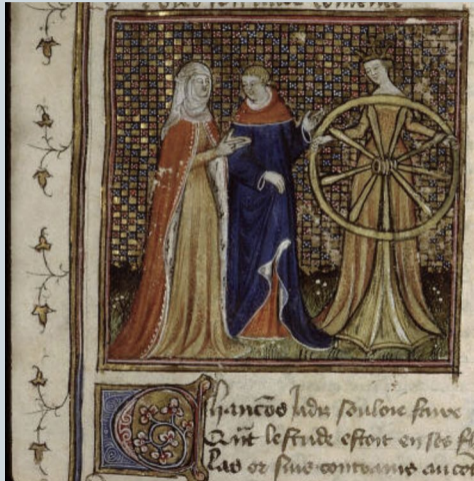 Chancons Jadis souloie faire
Quant lestude estoit en ses fl
Las or suis contrains au cont